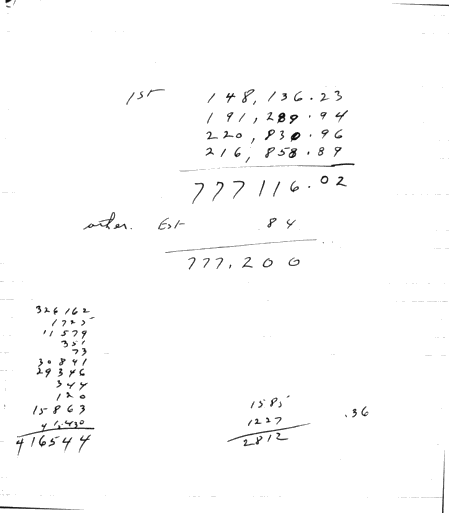 1st 148,136.23
191,289.94
220,830.96
216,858.89
777116.02
other. Est 84
777,200
326162
1725
11579
351
73
30841
29346
344
120
15863
416544
1585
1227 .36
2812